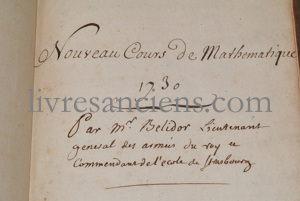 Nouveau Cours de Mathematique
1730
livresanciens.com
Par Mr. Belidor Lieutenant
general des armées du roy et
Commendant de l'ecole de Strasbourg